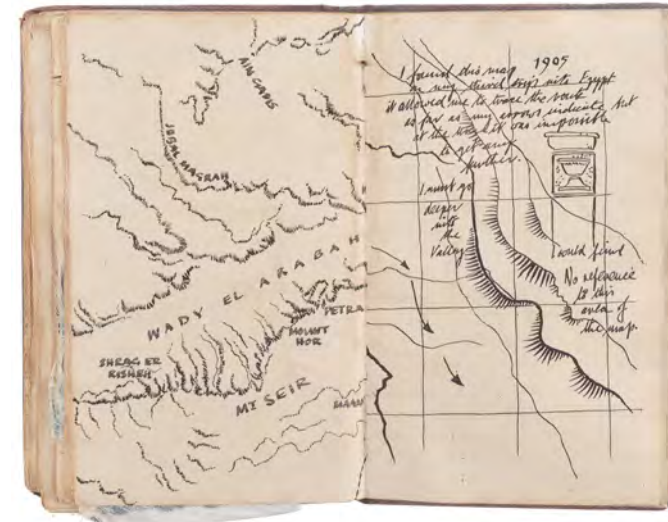 AIN GADIS
JEBAL MASRAH
WADY EL ARABAH
PETRA
MOUNT
HOR
SHRAG ER
RISHEH
MT SEIR
MAAN
1905
I found this map
on my third trip into Egypt
it allowed me to trace the route
as far as my arrows indicate, but
at the time it was impossible
to get any
further.
I must go
deeper
into
the
Valley
I could find
No reference
to this
area of
the map.